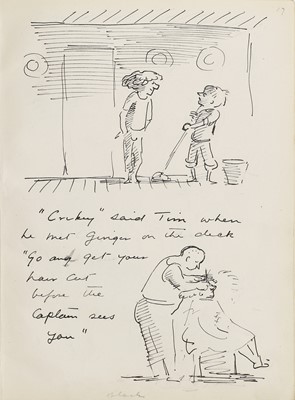 "Crikey" said Tim when
he met Ginger on the deck
"Go and get your
hair cut
before the
Captain sees
you"
black